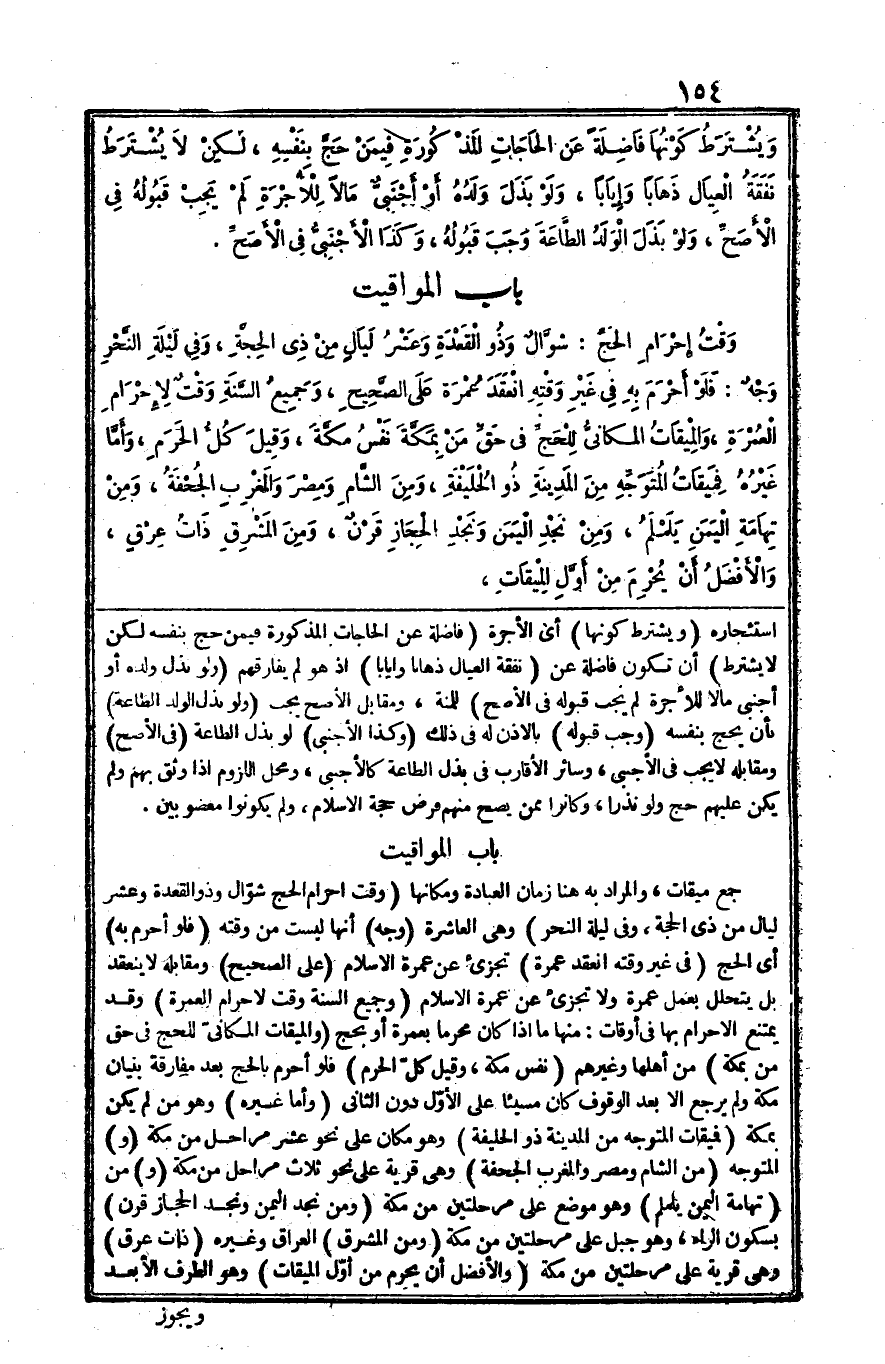 ١٥٤
وَيُشْتَرَطُ كَوْنُهَا فَاضِلَةً عَنِ الْحَاجَاتِ الْمَذْكُورَةِ فِيمَنْ حَجَّ بِنَفْسِهِ ، لَكِنْ لَا يُشْتَرَطُ
نَفَقَةُ الْعِيَالِ ذَهَابًا وَإِيَابًا ، وَلَوْ بَذَلَ وَلَدُهُ أَوْ أَجْنَبِيٌّ مَالًا لِلْأُجْرَةِ لَمْ يَجِبْ قَبُولُهُ فِي
الْأَصَحِّ ، وَلَوْ بَذَلَ الْوَلَدُ الطَّاعَةَ وَجَبَ قَبُولُهُ ، وَكَذَا الْأَجْنَبِيُّ فِي الْأَصَحِّ .
باب المواقيت
وَقْتُ إِحْرَامِ الْحَجِّ : شَوَّالٌ وَذُو الْقَعْدَةِ وَعَشْرُ لَيَالٍ مِنْ ذِى الْحِجَّةِ ، وَفِي لَيْلَةِ النَّحْرِ
وَجْهٌ : فَلَوْ أَحْرَمَ بِهِ فِي غَيْرِ وَقْتِهِ انْعَقَدَ عُمْرَةً عَلَى الصَّحِيحِ ، وَجَمِيعُ السَّنَةِ وَقْتٌ لِإِحْرَامِ
الْعُمْرَةِ ، وَالْمِيقَاتُ الْمَكَانِىُّ لِلْحَجِّ فِى حَقِّ مَنْ بِمَكَّةَ نَفْسُ مَكَّةَ ، وَقِيلَ كُلُّ الْحَرَمِ ، وَأَمَّا
غَيْرُهُ فَمِيقَاتُ الْمُتَوَجِّهِ مِنَ الْمَدِينَةِ ذُو الْحُلَيْفَةِ ، وَمِنَ الشَّامِ وَمِصْرَ وَالْمَغْرِبِ الْجُحْفَةُ ، وَمِنْ
تِهَامَةِ الْيَمَنِ يَلَمْلَمُ ، وَمِنْ نَجْدِ الْيَمَنِ وَنَجْدِ الْحِجَازِ قَرْنٌ ، وَمِنَ الْمَشْرِقِ ذَاتُ عِرْقٍ ،
وَالْأَفْضَلُ أَنْ يُحْرِمَ مِنْ أَوَّلِ الْمِيقَاتِ ،
استئجاره (ويشترط كونها) أى الأجرة (فاضلة عن الحاجات المذكورة فيمن حج بنفسه لكن
لا يشترط) أن تكون فاضلة عن (نفقة العيال ذهابا وايابا) اذ هو لم يفارقهم (ولو بذل ولده أو
أجنبى مالا للأجرة لم يجب قبوله فى الأصح) للمنة ، ومقابل الأصح يجب (ولو بذل الولد الطاعة)
بأن يحج بنفسه (وجب قبوله) بالاذن له فى ذلك (وكذا الأجنبى) لو بذل الطاعة (فى الأصح)
ومقابله لا يجب فى الأجنبى ، وسائر الأقارب فى بذل الطاعة كالأجنبى ، ومحل اللزوم اذا وثق بهم ولم
يكن عليهم حج ولو نذرا ، وكانوا ممن يصح منهم فرض حجة الاسلام ، ولم يكونوا معضوبين .
باب المواقيت
جمع ميقات ، والمراد به هنا زمان العبادة ومكانها (وقت احرام الحج شوّال وذو القعدة وعشر
ليال من ذى الحجة ، وفى ليلة النحر) وهى العاشرة (وجه) أنها ليست من وقته (فلو أحرم به)
أى الحج (فى غير وقته انعقد عمرة) تجزئ عن عمرة الاسلام (على الصحيح) ومقابله لا ينعقد
بل يتحلل بعمل عمرة ولا تجزئ عن عمرة الاسلام (وجميع السنة وقت لاحرام العمرة) وقد
يمتنع الاحرام بها فى أوقات : منها ما اذا كان محرما بعمرة أو بحج (والميقات المكانىّ للحج فى حق
من بمكة) من أهلها وغيرهم (نفس مكة ، وقيل كلّ الحرم) فلو أحرم بالحج بعد مفارقة بنيان
مكة ولم يرجع الا بعد الوقوف كان مسيئا على الأوّل دون الثانى (وأما غيره) وهو من لم يكن
بمكة (فميقات المتوجه من المدينة ذو الحليفة) وهو مكان على نحو عشر مراحل من مكة (و)
المتوجه (من الشام ومصر والمغرب الجحفة) وهى قرية على نحو ثلاث مراحل من مكة (و) من
(تهامة اليمن يلملم) وهو موضع على مرحلتين من مكة (ومن نجد اليمن ونجد الحجاز قرن)
بسكون الراء ، وهو جبل على مرحلتين من مكة (ومن المشرق) العراق وغيره (ذات عرق)
وهى قرية على مرحلتين من مكة (والأفضل أن يحرم من أوّل الميقات) وهو الطرف الأبعد
ويجوز